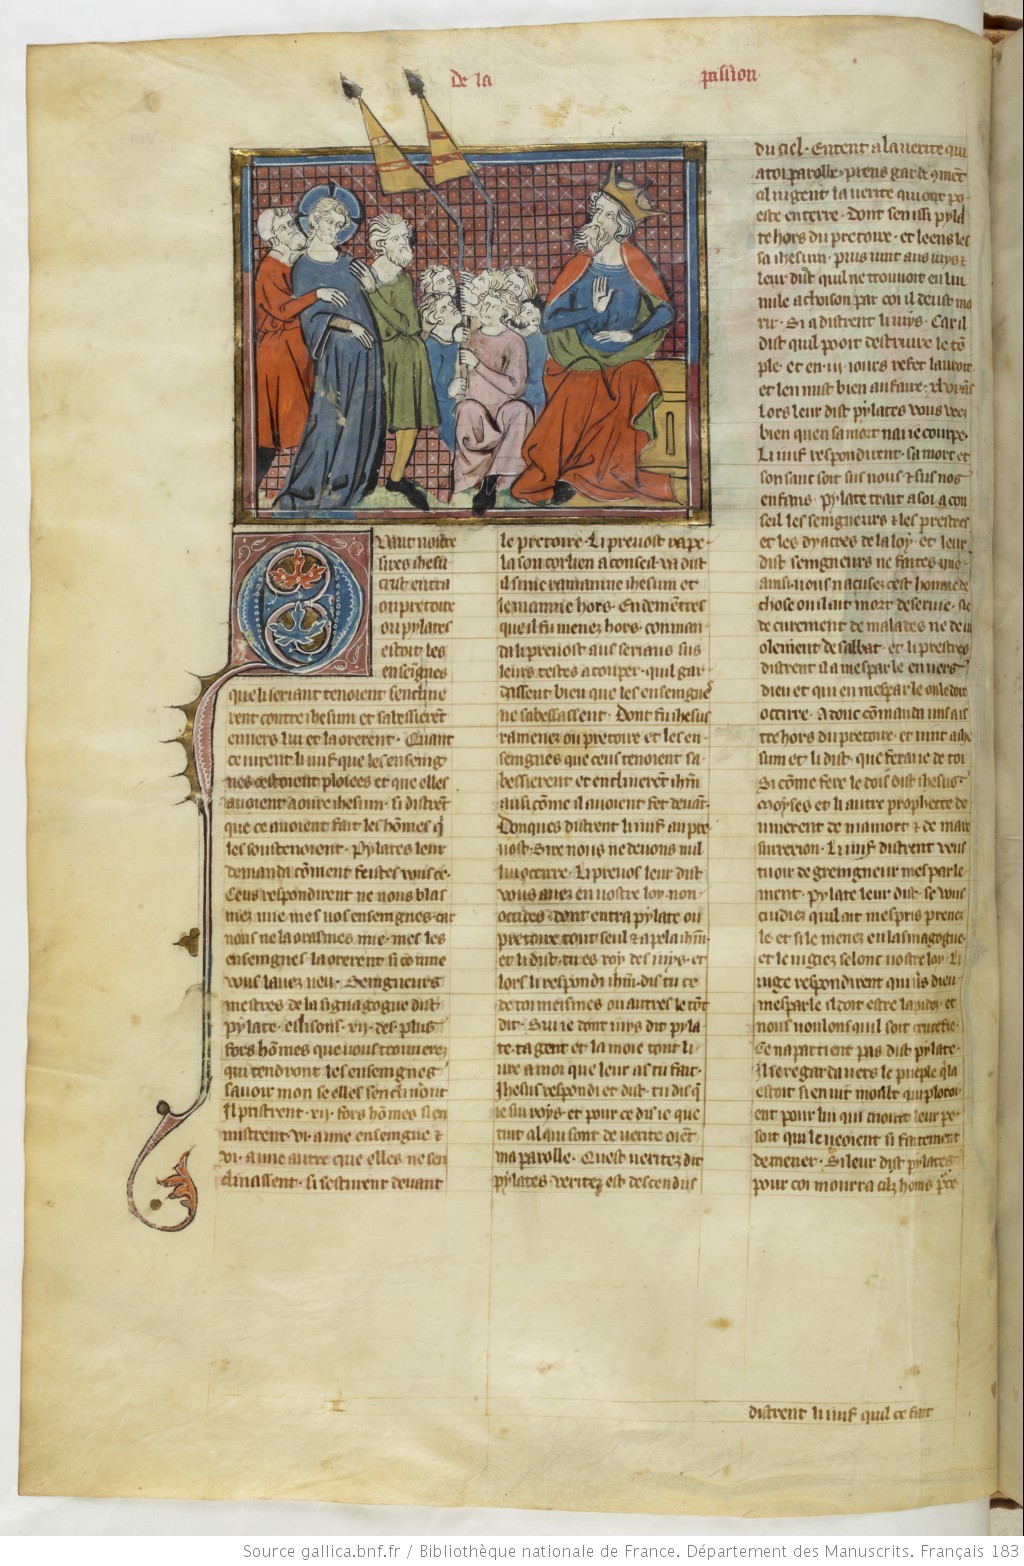 de la passion
Quant nostre
sires ihesu
crist entra
ou pretoire
ou pylates
estoit les
enseignes
que li seriant tenoient sencline
rent contre ihesum et sabessierent
enuers lui et laorerent. Quant
ce uirent li iuif que les enseig
nes cestoient ploiees et que elles
auoient aoure ihesum. si distrent
que ce auoient fait les hōmes q̄
les soustenoient. Pylates leur
demanda cōment feistes vous ce.
Ceus respondirent ne nous blas
mez mie mes uos enseingnes car
nous ne laorasmes mie. mes les
enseignes laorerent si comme
vous lauez ueu. Seingneurs
mestres de la signagogue dist
pylate. eslisons .xij. des plus
fors hōmes que vous trouuerez
qui tendront les enseingnes
sauoir mon se elles senclinront
Il pristrent .xij. fors hōmes si en
mistrent .vi. a une enseingne &
.vi. a une autre que elles ne sen
clinassent. si sesturent deuant
le pretoire. Li preuost rape
la son corlieu a conseil. va dist
il si me ramaine ihesum et
le maine hors. Endemētres
que il fu menez hors. conman
da li preuost aus serians sus
leurs testes a couper. quil gar
dassent bien que les enseingnes
ne sabessassent. Dont fu ihesus
ramenez ou pretoire et les en
seingnes que ceus tenoient sa
bessierent et enclinerēt ihm̄
ausi cōme il auoient fet deuāt.
Donques distrent li iuif au pre
uost. Sire nous ne deuons nul
lui occirre. Li preuos leur dist
vous auez en nostre loy. non
occides. dont entra pylate ou
pretoire tout seul & apela ihm̄.
et li dist. tu es roy des iuys. et
lors li respondi ihm̄. dis tu ce
de toi meismes ou autres le tōt
dit. Sui ie dont iuys dit pyla
te. ta gent et la moie tont li
ure a moi que leur as tu fait.
Ihesus respondi et dist. tu dis q̄
ie sui roys. et pour ce dis ie que
tuit cil qui sont de uerite oiēt
ma parolle. Quest veritez dit
pylates. veritez est descendus
du ciel. Entent a la uerite qui
a toi parolle. prens garde ōmēt
cil iugent la uerite qui ont po
este en terre. Dont sen issi pyla
te hors du pretoire. et leens les
sa ihesum. puis uint aus iuys et
leur dist quil ne trouuoit en lui
nule achoison par coi il deust mo
rir. Si a distrent li iuys. Car il
dist quil pooit destruire le tē
ple. et en .iij. iours refet lauroit
Lors leur dist pylates vous veez
bien quen sa mort nai ie courpe.
Li iuif respondirent. sa mort et
son sanc soit sus nous & sus nos
enfans. Pylate trait a soi a con
seil les seingneurs & les prestres
et les dyacres de la loy. et leur
dist seingneurs ne faites que
ainsi. nous nacusez cest homme de
chose ou il ait mort deseruie. ne
de curement de malades ne de ui
olement de sabbat. et li prestres
distrent il a mesparle enuers
dieu et qui en mesparle on le doit
occirre. Adonc cōmanda
hors du pretoire. et uint a ihe
sum et li dist. que ferai ie de toi
Si cōme fere le dois dist ihesus
Moyses et li autre prophecte de
uinerent de ma mort & de ma re
surrexion. Li iuif distrent veus
tu oir de greingneur mesparle
ment. Pylate leur dist. se vous
cuidiez quil ait mespris prenez
le et si le menez en la sinagogue
et le iugiez selonc nostre loy. Li
iuge respondirent qui us dieu
mesparle il doit estre lapidez. et
nous voulons quil soit crucefie.
Ce napartient pas dist pylate.
Il se regarda uers le pueple q̄ la
estoit si en uit moult qui plouroi
ent pour lui qui
soit quil le ueoient si faitement
demener. Si leur dist pylates
pour coi mourra cilz homs p̄ce
distrent li iuif quil ce fait
Source gallica.bnf.fr / Bibliothèque nationale de France. Département des Manuscrits. Français 183